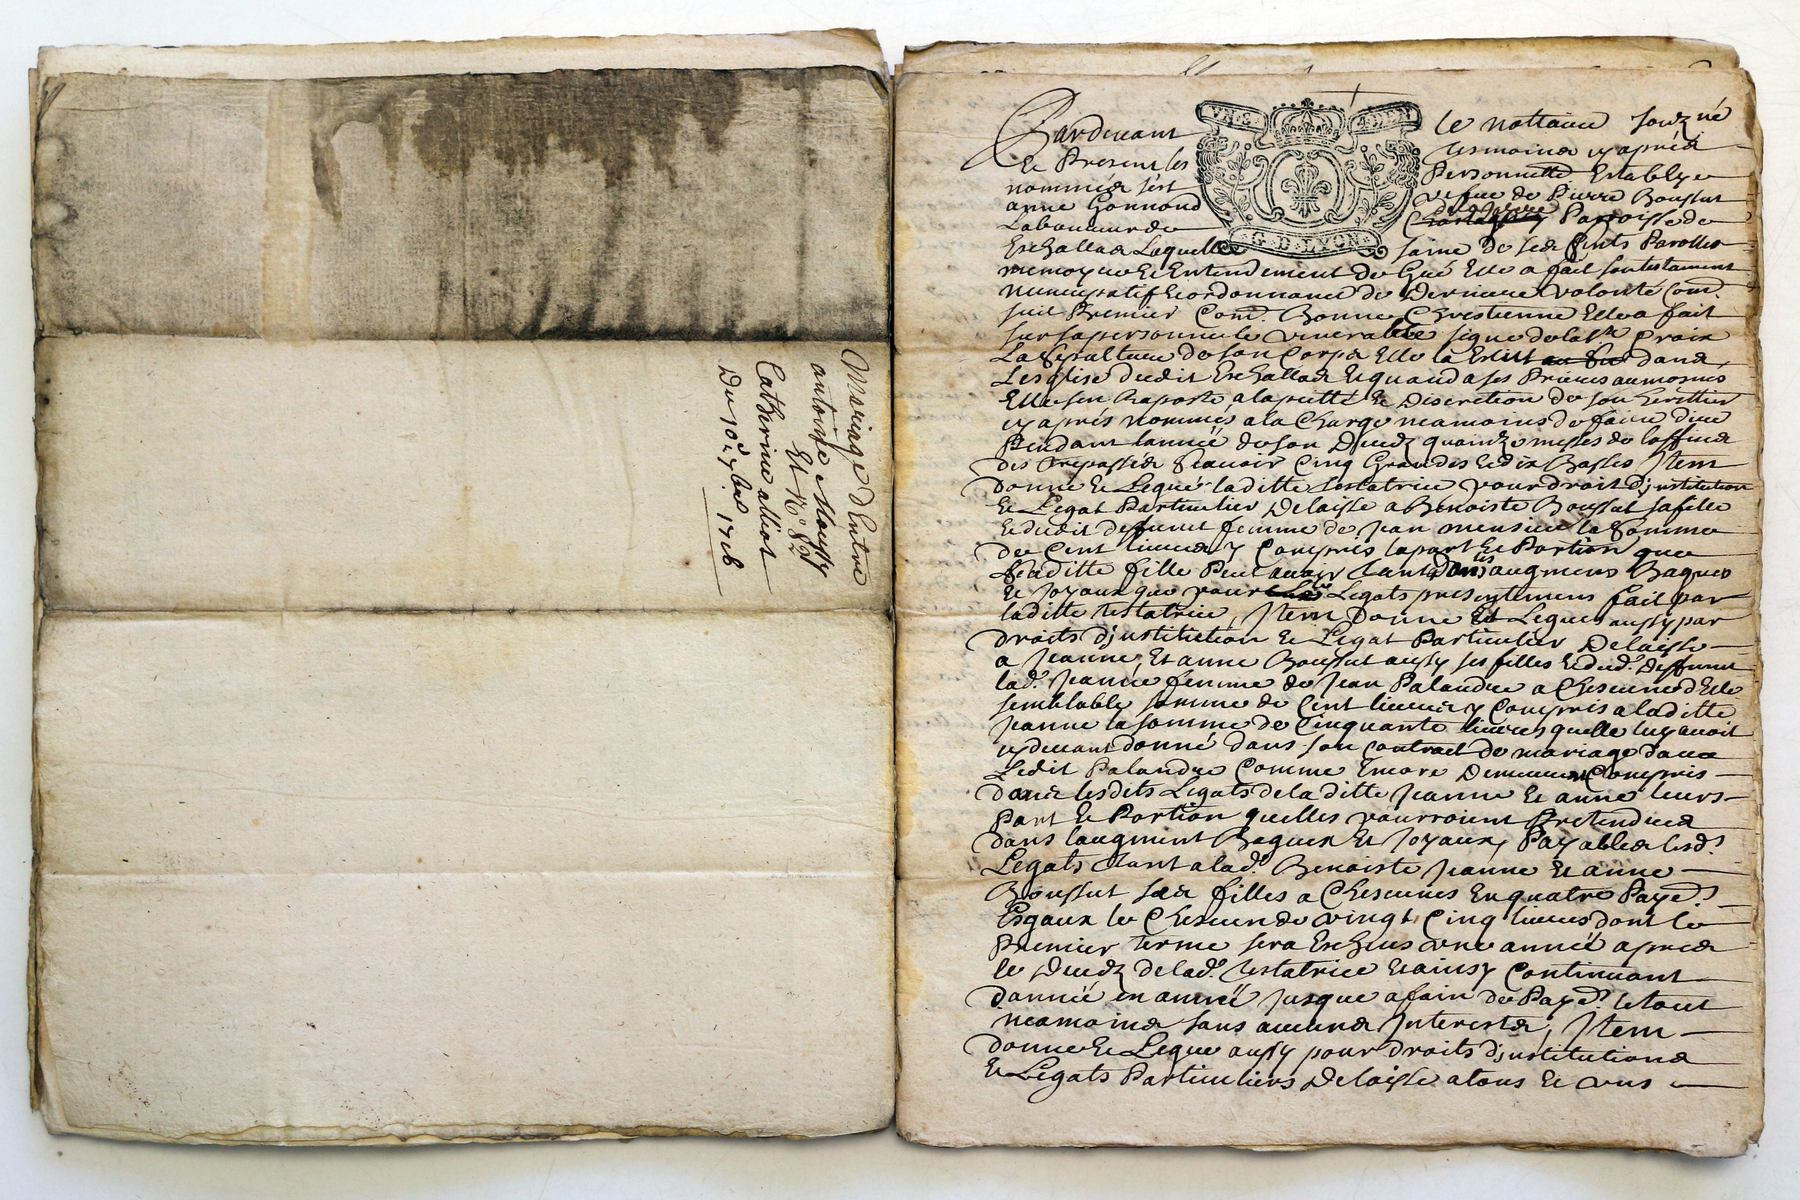 Mariage d'Entre
antoine Moussy
Et N° 82
Catherine alliot
Du 10e 7bre 1716
VN S 4 DEN
G. D. LYON
Pardeuant le nottaire souzné
Et Present les tesmoins cy aprés
nommés s'est Personnelle Establye
anne Gonnond vefue de Pierre Boussut
Laboureur de Parroisse de
Eschallas Laquelle saine de ses sens Parolles
memoyre Et Entendement de Gré Elle a fait son testament
nuncupatif Et ordonnance de Derniere volonté Com.
suit Premier Com. Bonne Chrestienne Elle a fait
sur sa personne le venerable signe de la ste Croix
La sepulture de son Corps Elle la Eslit au su dans
L'esglise dudit Eschallas Et quand a ses Prieres aumosnes
Elle s'en Raporte a la pieté Et Discretion de son heritier
cy aprés nommés a la Charge neamoins de faire dire
Pendant lannée de son Decedz quinze messes de loffice
des trepassés scauoir Cinq Grandes Et dix Basses Item
donne Et Legue laditte testatrice pour droit d'institution
Et Legat Particulier Delaisse a Benoiste Boussut sa fille
Et dudit deffunct femme de Jean mensieu la somme
de Cent liures y Compris la part Et Portion que
saditte fille Peut auoir tant dans les augment Bagues
Et Joyaux que pour Legats presentement fait par
laditte testatrice, Item donne Et Legue aussy par
droits d'institution Et Legat Particulier Delaisse
a Jeanne, Et anne Boussut aussy ses filles Et dud. Deffunct
lad. Jeanne femme de Jean Palandre a Chescune d'Elle
semblable somme de Cent liures y Compris a laditte
Jeanne la somme de Cinquante liures quelle luy auoit
cy deuant donné dans son Contract de mariage d'auec
Ledit Palandre Comme Encore Demeurent Compris
Dans lesdits Legats de laditte Jeanne Et anne leurs
Part Et Portion quelles pourroient Pretendres
dans laugment Bagues Et Joyaux, Payables lesd.
Legats tant a lad. Benoiste Jeanne Et anne
Boussut ses filles a Chescunes En quatre Paye.
Esgaux le Chescun de vingt Cinq liures dont le
Premier terme sera Escheus vne année apres
le Decedz de lad. testatrice Et ainsy Continuant
d'année en année jusque a fain de Paye. le tout
neamoins sans aucuns Interests, Item
donne Et Legue aussy pour droits d'institutions
Et Legats Particuliers Delaisse a tous Et vns